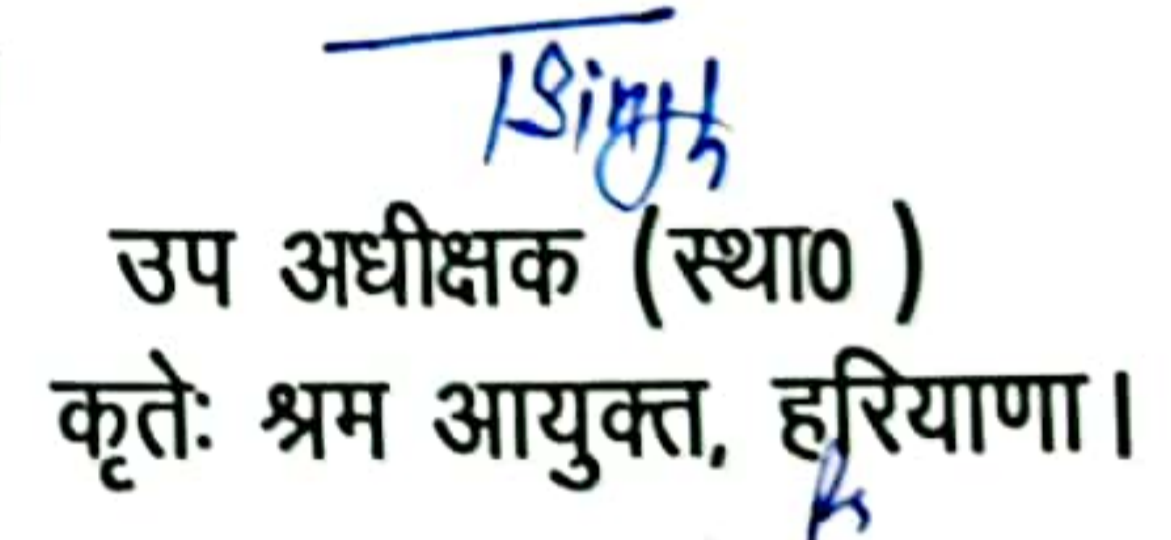 Singh
उप अधीक्षक (स्था0 )
कृतेः श्रम आयुक्त, हरियाणा।